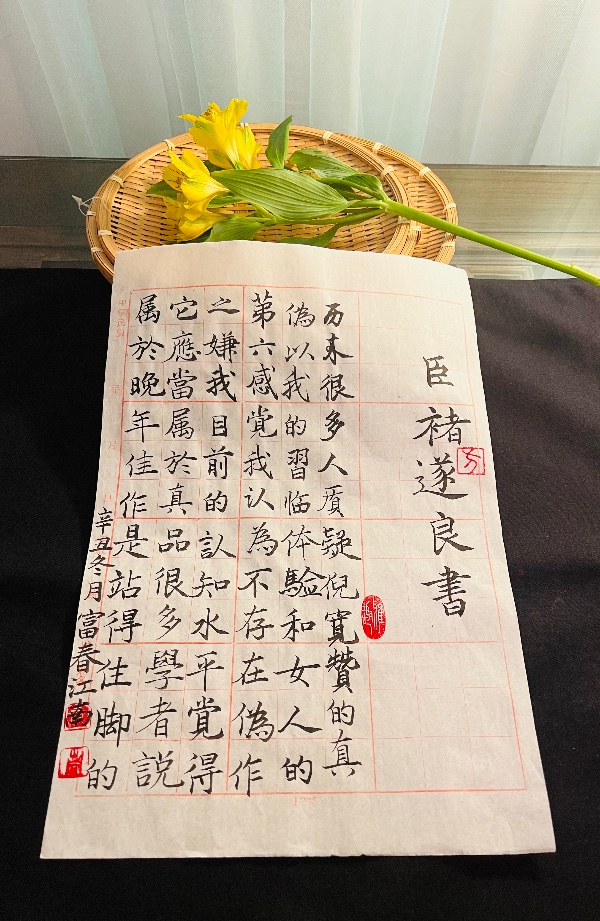 臣褚遂良書
历来很多人质疑倪寬贊的真
偽以我的習临体驗和女人的
第六感覺我认為不存在偽作
之嫌我目前的认知水平覺得
它應當属於真品很多學者説
属於晚年佳作是站得住脚的
辛丑冬月富春江